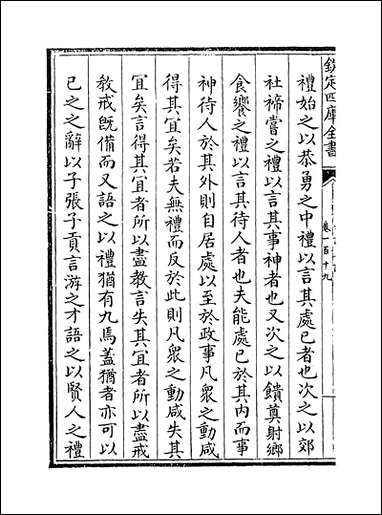 欽定四庫全書
卷一百十九
禮始之以恭勇之中禮以言其處已者也次之以郊
社禘嘗之禮以言其事神者也又次之以饋奠射鄉
食饗之禮以言其待人者也夫能處已於其内而事
神待人於其外則自居處以至於政事凡衆之動咸
得其宜矣若夫無禮而反於此則凡衆之動咸失其
宜矣言得其宜者所以盡教言失其宜者所以盡戒
教戒既備而又語之以禮猶有九焉蓋猶者亦可以
已之之辭以子張子貢言游之才語之以賢人之禮